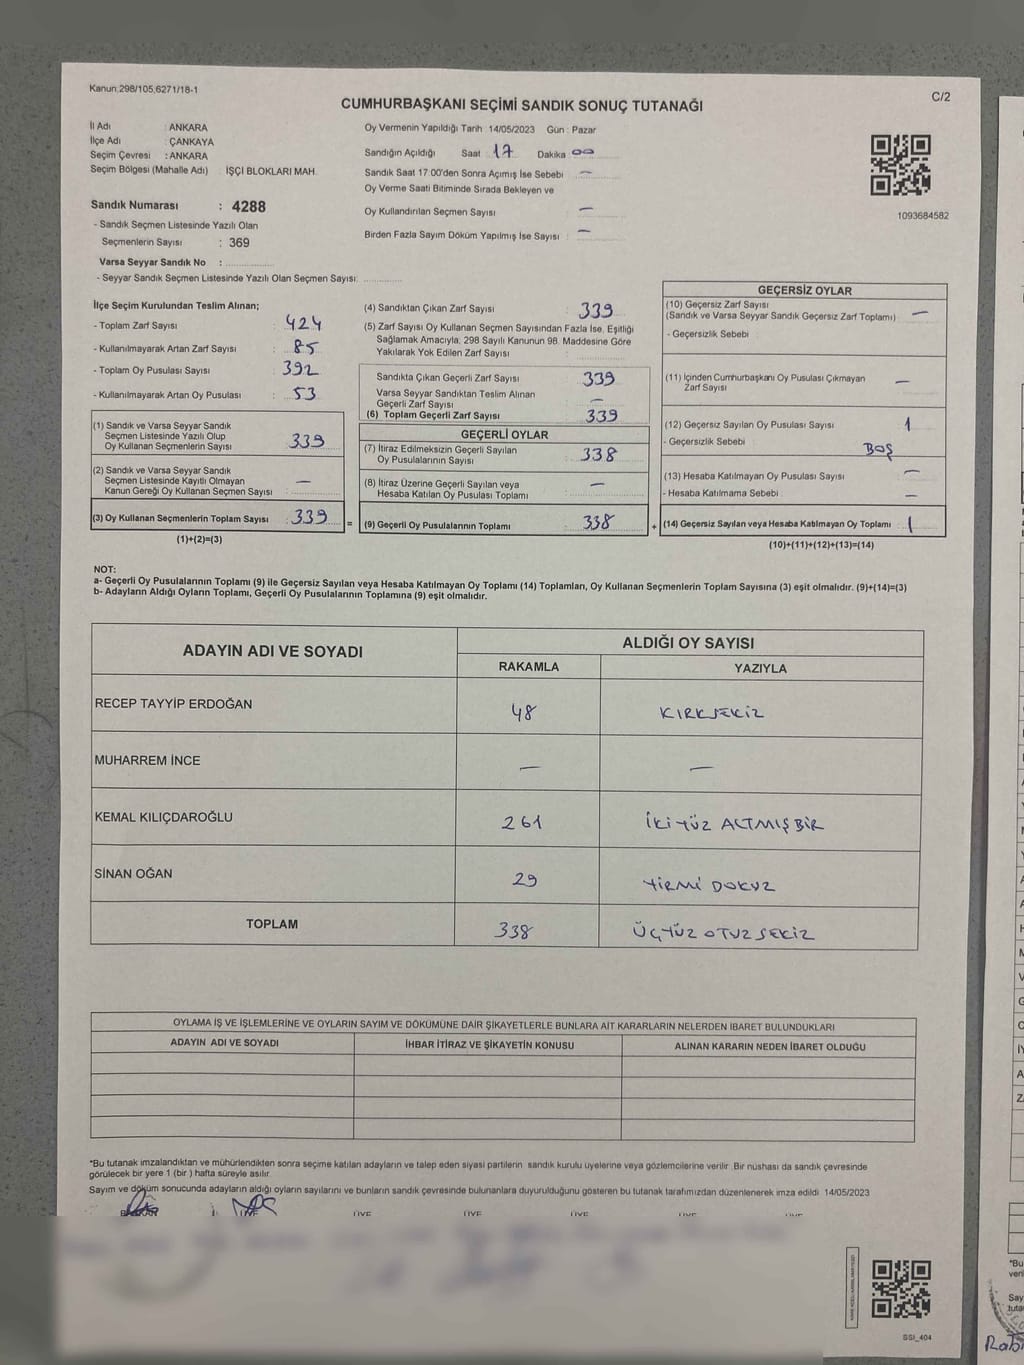 Kanun,298/105,6271/18-1
C/2
CUMHURBAŞKANI SEÇİMİ SANDIK SONUÇ TUTANAĞI
İl Adı : ANKARA
İlçe Adı : ÇANKAYA
Seçim Çevresi : ANKARA
Seçim Bölgesi (Mahalle Adı) : İŞÇİ BLOKLARI MAH.
Sandık Numarası : 4288
- Sandık Seçmen Listesinde Yazılı Olan
Seçmenlerin Sayısı : 369
Varsa Seyyar Sandık No :
- Seyyar Sandık Seçmen Listesinde Yazılı Olan Seçmen Sayısı:
Oy Vermenin Yapıldığı Tarih :14/05/2023 Gün : Pazar
Sandığın Açıldığı Saat : 17 Dakika 00
Sandık Saat 17:00'den Sonra Açımış İse Sebebi : —
Oy Verme Saati Bitiminde Sırada Bekleyen ve
Oy Kullandırılan Seçmen Sayısı : —
Birden Fazla Sayım Döküm Yapılmış İse Sayısı : —
1093684582
İlçe Seçim Kurulundan Teslim Alınan;
- Toplam Zarf Sayısı : 424
- Kullanılmayarak Artan Zarf Sayısı : 85
- Toplam Oy Pusulası Sayısı : 392
- Kullanılmayarak Artan Oy Pusulası : 53
(1) Sandık ve Varsa Seyyar Sandık
Seçmen Listesinde Yazılı Olup
Oy Kullanan Seçmenlerin Sayısı : 339
(2) Sandık ve Varsa Seyyar Sandık
Seçmen Listesinde Kayıtlı Olmayan
Kanun Gereği Oy Kullanan Seçmen Sayısı : —
(3) Oy Kullanan Seçmenlerin Toplam Sayısı : 339
(1)+(2)=(3)
=
(4) Sandıktan Çıkan Zarf Sayısı : 339
(5) Zarf Sayısı Oy Kullanan Seçmen Sayısından Fazla İse, Eşitliği
Sağlamak Amacıyla, 298 Sayılı Kanunun 98. Maddesine Göre
Yakılarak Yok Edilen Zarf Sayısı :
Sandıkta Çıkan Geçerli Zarf Sayısı : 339
Varsa Seyyar Sandıktan Teslim Alınan
Geçerli Zarf Sayısı : —
(6) Toplam Geçerli Zarf Sayısı : 339
GEÇERLİ OYLAR
(7) İtiraz Edilmeksizin Geçerli Sayılan
Oy Pusulalarının Sayısı : 338
(8) İtiraz Üzerine Geçerli Sayılan veya
Hesaba Katılan Oy Pusulası Toplamı : —
(9) Geçerli Oy Pusulalarının Toplamı : 338
+
GEÇERSİZ OYLAR
(10) Geçersiz Zarf Sayısı
(Sandık ve Varsa Seyyar Sandık Geçersiz Zarf Toplamı) : —
- Geçersizlik Sebebi :
(11) İçinden Cumhurbaşkanı Oy Pusulası Çıkmayan
Zarf Sayısı : —
(12) Geçersiz Sayılan Oy Pusulası Sayısı : 1
- Geçersizlik Sebebi : BOŞ
(13) Hesaba Katılmayan Oy Pusulası Sayısı : —
- Hesaba Katılmama Sebebi : —
(14) Geçersiz Sayılan veya Hesaba Katılmayan Oy Toplamı : 1
(10)+(11)+(12)+(13)=(14)
NOT:
a- Geçerli Oy Pusulalarının Toplamı (9) ile Geçersiz Sayılan veya Hesaba Katılmayan Oy Toplamı (14) Toplamları, Oy Kullanan Seçmenlerin Toplam Sayısına (3) eşit olmalıdır. (9)+(14)=(3)
b- Adayların Aldığı Oyların Toplamı, Geçerli Oy Pusulalarının Toplamına (9) eşit olmalıdır.
ADAYIN ADI VE SOYADI
ALDIĞI OY SAYISI
RAKAMLA YAZIYLA
RECEP TAYYİP ERDOĞAN 48 KIRKSEKİZ
MUHARREM İNCE — —
KEMAL KILIÇDAROĞLU 261 İKİ YÜZ ALTMIŞ BİR
SİNAN OĞAN 29 YİRMİ DOKUZ
TOPLAM 338 ÜÇYÜZ OTUZ SEKİZ
OYLAMA İŞ VE İŞLEMLERİNE VE OYLARIN SAYIM VE DÖKÜMÜNE DAİR ŞİKAYETLERLE BUNLARA AİT KARARLARIN NELERDEN İBARET BULUNDUKLARI
ADAYIN ADI VE SOYADI İHBAR İTİRAZ VE ŞİKAYETİN KONUSU ALINAN KARARIN NEDEN İBARET OLDUĞU
*Bu tutanak imzalandıktan ve mühürlendikten sonra seçime katılan adayların ve talep eden siyasi partilerin sandık kurulu üyelerine veya gözlemcilerine verilir .Bir nüshası da sandık çevresinde
görülecek bir yere 1 (bir ) hafta süreyle asılır.
Sayım ve döküm sonucunda adayların aldığı oyların sayılarını ve bunların sandık çevresinde bulunanlara duyurulduğunu gösteren bu tutanak tarafımızdan düzenlenerek imza edildi 14/05/2023
BAŞKAN ÜYE ÜYE ÜYE ÜYE ÜYE ÜYE
SSI_404